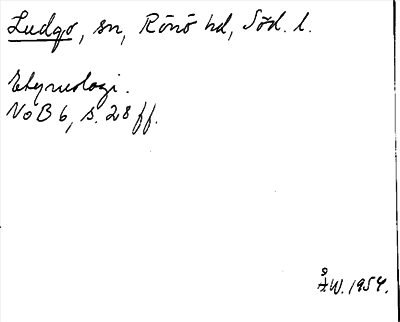 Ludgo, sn, Rönö hd, Söd. l.
Etymologi.
NoB 6, s. 28 ff.
Å.W. 1954.